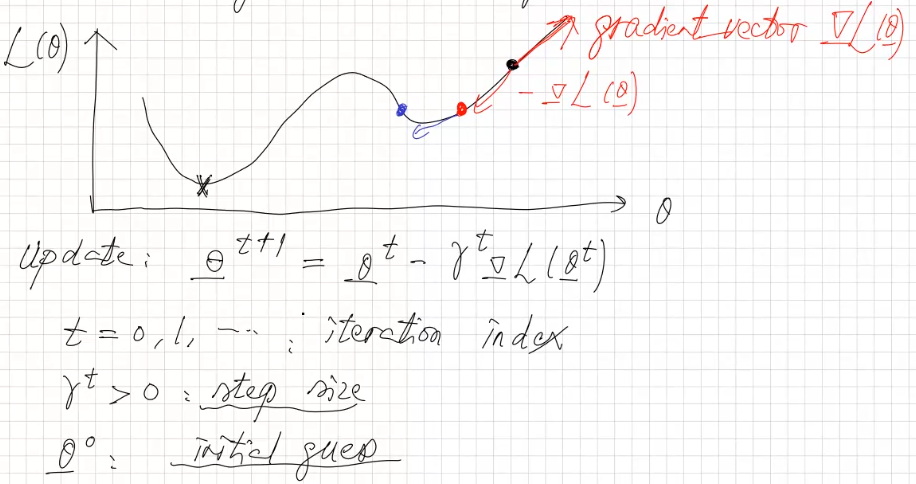 L(θ)
gradient vector ∇L(θ)
- ∇L(θ)
θ
Update: θ^{t+1} = θ^t - γ^t ∇L(θ^t)
t = 0, 1, ... : iteration index
γ^t > 0 : step size
θ^0 : initial guess